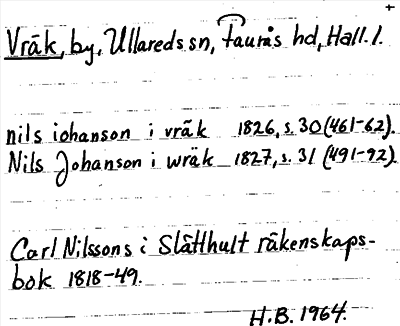 Vråk, by, Ullareds sn, Faurås hd, Hall. l.
nils iohanson i vråk 1826, s. 30 (461-62).
Nils Johanson i wråk 1827, s. 31 (491-92).
Carl Nilssons i Slätthult räkenskaps-
bok 1818-49.
H.B. 1964.